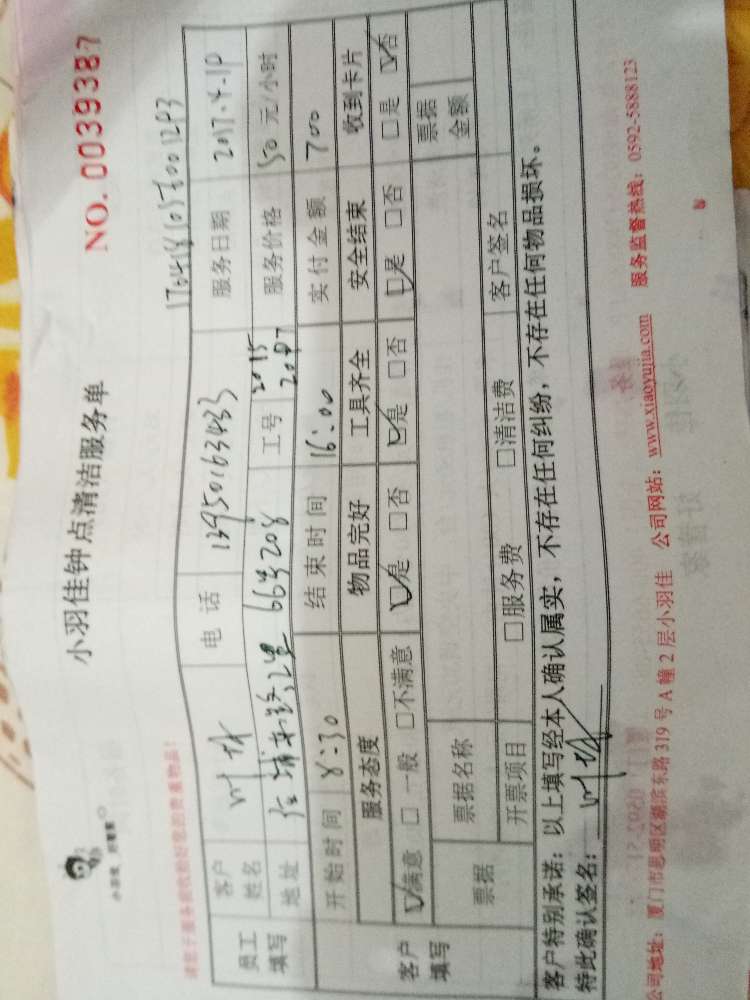 NO. 0039387
小羽佳钟点清洁服务单
小羽佳 好管家
请您于服务前收拾好您的贵重物品!
员工填写
客户姓名 叶 电话 13950163433 服务日期 2017.4.10
地址 66号208 工号 2015 服务价格 50 元/小时
开始时间 8:30 结束时间 16:00 实付金额 700
客户填写
服务态度 物品完好 工具齐全 安全结束 收到卡片
☑满意 □一般 □不满意 ☑是 □否 ☑是 □否 ☑是 □否 □是 ☑否
票据 票据名称 票据金额
开票项目 □服务费 □清洁费 客户签名
客户特别承诺:以上填写经本人确认属实,不存在任何纠纷,不存在任何物品损坏。
特此确认签名: 叶
公司地址:厦门市思明区湖滨东路 319 号 A 幢 2 层小羽佳 公司网站:www.xiaoyujia.com 服务监督热线:0592-5888123